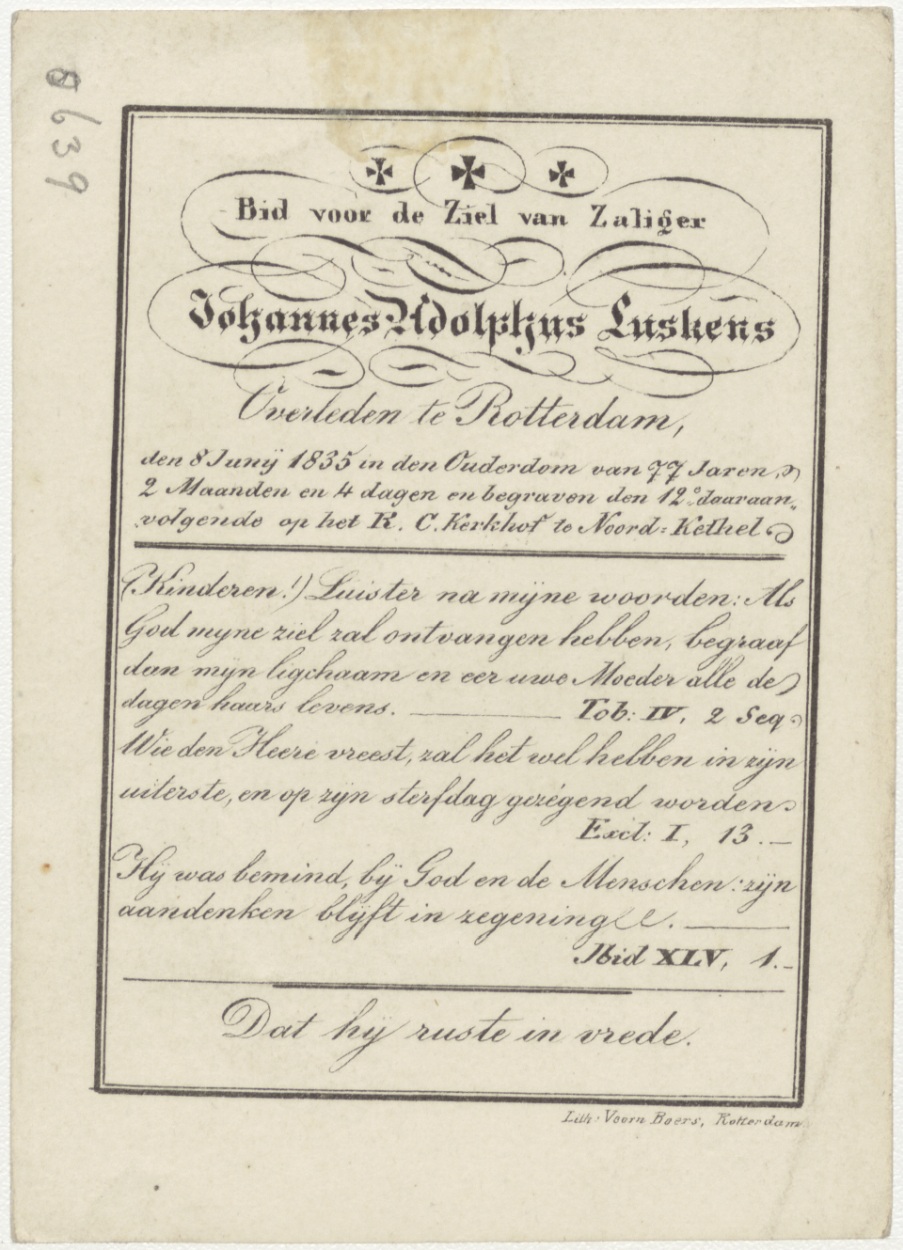 8639
Bid voor de Ziel van Zaliger
Johannes Adolphus Luskens
Overleden te Rotterdam,
den 8 Junij 1835 in den Ouderdom van 77 Jaren
2 Maanden en 4 dagen en begraven den 12º daaraan„
volgende op het R. C. Kerkhof te Noord=Kethel
(Kinderen!) Luister na mijne woorden: Als
God myne ziel zal ontvangen hebben, begraaf
dan mijn ligchaam en eer uwe Moeder alle de
dagen haars levens. Tob: IV, 2 Seq
Wie den Heere vreest, zal het wel hebben in zijn
uiterste, en op zijn sterfdag gezégend worden
Excl: I, 13.
Hij was bemind, bij God en de Menschen: zijn
aandenken blijft in zegening.
Ibid XLV, 1.
Dat hij ruste in vrede.
Lith: Voorn Boers, Rotterdam